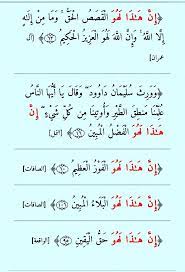 ﴿إِنَّ هَٰذَا لَهُوَ الْقَصَصُ الْحَقُّ وَمَا مِنْ إِلَٰهٍ
إِلَّا اللَّهُ وَإِنَّ اللَّهَ لَهُوَ الْعَزِيزُ الْحَكِيمُ ﴿٦٢﴾﴾ [آل
عمران]
﴿وَوَرِثَ سُلَيْمَانُ دَاوُودَ وَقَالَ يَا أَيُّهَا النَّاسُ
عُلِّمْنَا مَنْطِقَ الطَّيْرِ وَأُوتِينَا مِنْ كُلِّ شَيْءٍ إِنَّ
هَٰذَا لَهُوَ الْفَضْلُ الْمُبِينُ ﴿١٦﴾﴾ [النمل]
﴿إِنَّ هَٰذَا لَهُوَ الْفَوْزُ الْعَظِيمُ ﴿٦٠﴾﴾ [الصافات]
﴿إِنَّ هَٰذَا لَهُوَ الْبَلَاءُ الْمُبِينُ ﴿١٠٦﴾﴾ [الصافات]
﴿إِنَّ هَٰذَا لَهُوَ حَقُّ الْيَقِينِ ﴿٩٥﴾﴾ [الواقعة]